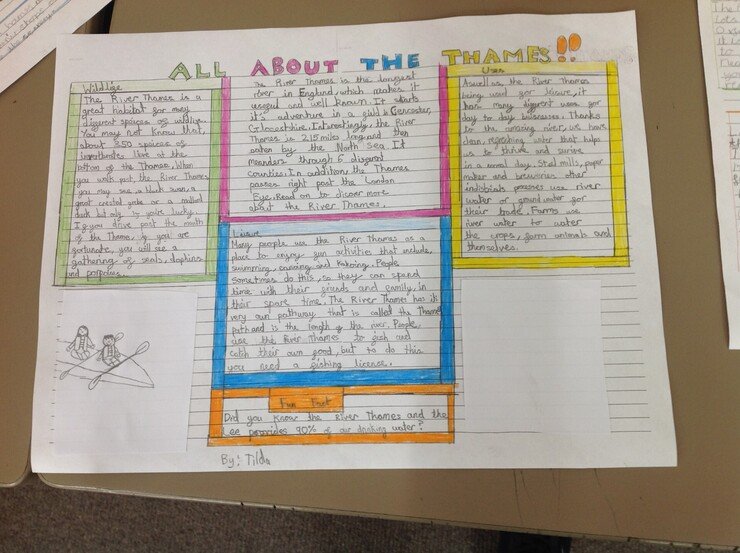 ALL ABOUT THE THAMES!!
Wildlife
The River Thames is a
great habitat for many
different spieces of wildlife.
You may not know that,
about 350 spieces of
invertebrates live at the
bottom of the Thames. When
you walk past the River Thames
you may see a black swan, a
great crested grebe or a mallard
duck but only if you're lucky.
If you drive past the mouth
of the Thames, if you are
fortunate, you will see a
gathering of seals, dolphins
and porpoises.
The River Thames is the longest
river in England, which makes it
useful and well known. It starts
it's adventure in a field in Cirencester,
Glocestshire. Interestingly, the River
Thames is 215 miles long and then
eaten by the North Sea. It
meanders through 6 different
counties. In addition, the Thames
passes right past the London
Eye. Read on to dicover more
about the River Thames.
Uses
Aswell as, the River Thames
being used for leisure, it
has many different uses for
day to day businesses. Thanks
to the amazing river, we have
clean, refreshing water that helps
us to thrive and survive
in a normal day. Steel mills, paper
maker and breweries other
indistrials processes use river
water or ground water for
their trade. Farms use
river water to water
the crops, farm animals and
themselves.
Leisure
Many people use the River Thames as a
place to enjoy fun activities that include,
swimming, canoing and kakoing. People
sometimes do this, so they can spend
time with their friends and family, in
their spare time. The River Thames has it's
very own pathway that is called the Thames
path and is the length of the river. People,
use the River Thames to fish and
catch their own food, but to do this
you need a fishing licence.
Fun Fact
Did you know the River Thames and the
Lee provides 90% of our drinking water?
By: Tilda